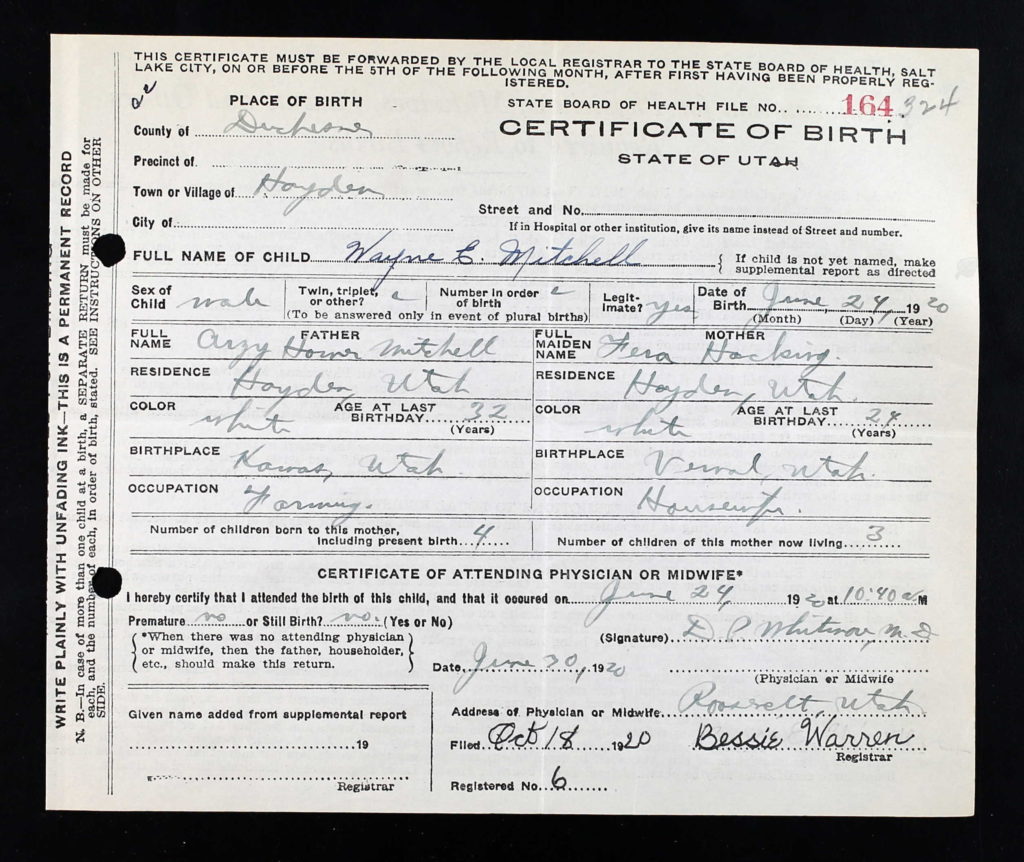 THIS CERTIFICATE MUST BE FORWARDED BY THE LOCAL REGISTRAR TO THE STATE BOARD OF HEALTH, SALT
LAKE CITY, ON OR BEFORE THE 5TH OF THE FOLLOWING MONTH, AFTER FIRST HAVING BEEN PROPERLY REG-
ISTERED.
PLACE OF BIRTH
STATE BOARD OF HEALTH FILE NO. 164 324
County of Duchesne
CERTIFICATE OF BIRTH
STATE OF UTAH
Precinct of
Town or Village of Hayden
Street and No.
City of:
If in Hospital or other institution, give its name instead of Street and number.
FULL NAME OF CHILD Wayne E. Mitchell { If child is not yet named, make
supplemental report as directed
Sex of Child male
Twin, triplet, or other?
Number in order of birth
(To be answered only in event of plural births)
Legit- imate? yes
Date of Birth June 24, 1920
(Month) (Day) (Year)
FULL NAME FATHER Homer Mitchell
FULL MAIDEN NAME MOTHER Hacking.
RESIDENCE Hayden, Utah
RESIDENCE Hayden, Utah.
COLOR white AGE AT LAST BIRTHDAY 32 (Years)
COLOR white AGE AT LAST BIRTHDAY 24 (Years)
BIRTHPLACE Kamas, Utah.
BIRTHPLACE Vernal, Utah.
OCCUPATION Farming.
OCCUPATION Housewife.
Number of children born to this mother, including present birth 4
Number of children of this mother now living 3
CERTIFICATE OF ATTENDING PHYSICIAN OR MIDWIFE*
I hereby certify that I attended the birth of this child, and that it occured on June 24, 1920 at 10:40 a M
Premature no or Still Birth? no. (Yes or No)
{ *When there was no attending physician
or midwife, then the father, householder,
etc., should make this return. }
(Signature) D P Whitmore, M. D
Date, June 30, 1920
(Physician or Midwife
Address of Physician or Midwife Roosevelt, Utah
Given name added from supplemental report
19
Registrar
Filed Oct 18 1920 Bessie Warren
Registrar
Registered No. 6
WRITE PLAINLY WITH UNFADING INK—THIS IS A PERMANENT RECORD
N. B.—In case of more than one child at a birth, a SEPARATE RETURN must be made for
each, and the number of each, in order of birth, stated. SEE INSTRUCTIONS ON OTHER
SIDE.